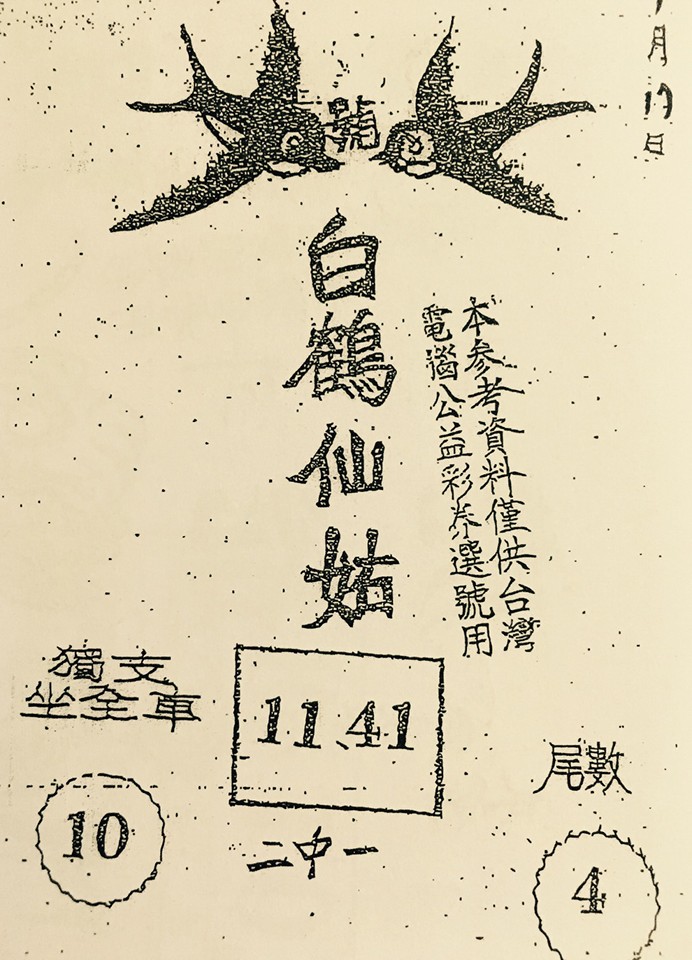 月
日
白鶴仙姑
本參考資料僅供台灣
電腦公益彩券選號用
獨支
坐全車
10
11、41
二中一
尾數
4